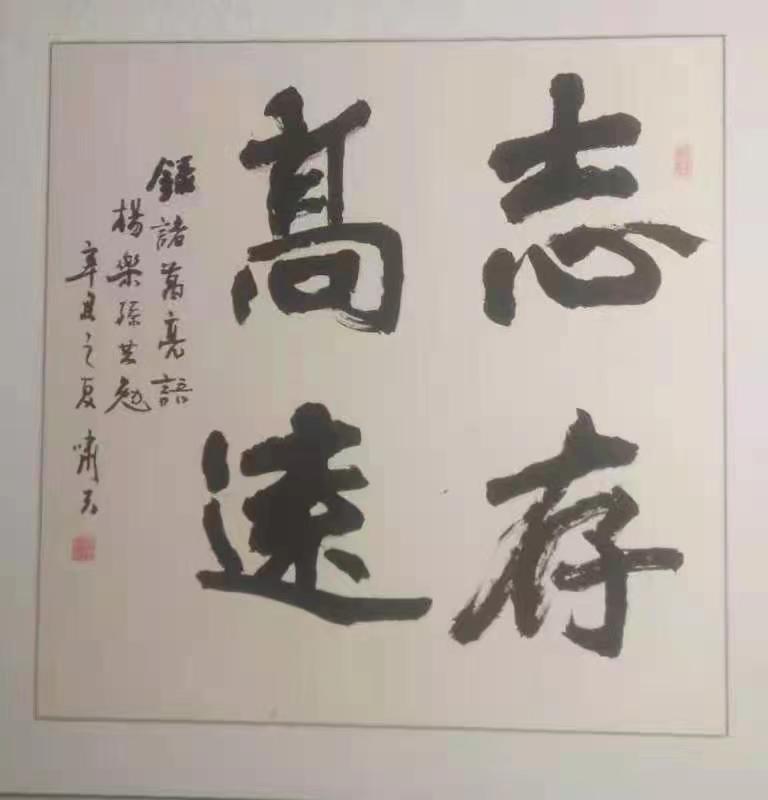 志存
高遠
錄諸葛亮語
楊樂孫共勉
辛丑之夏 嘯天